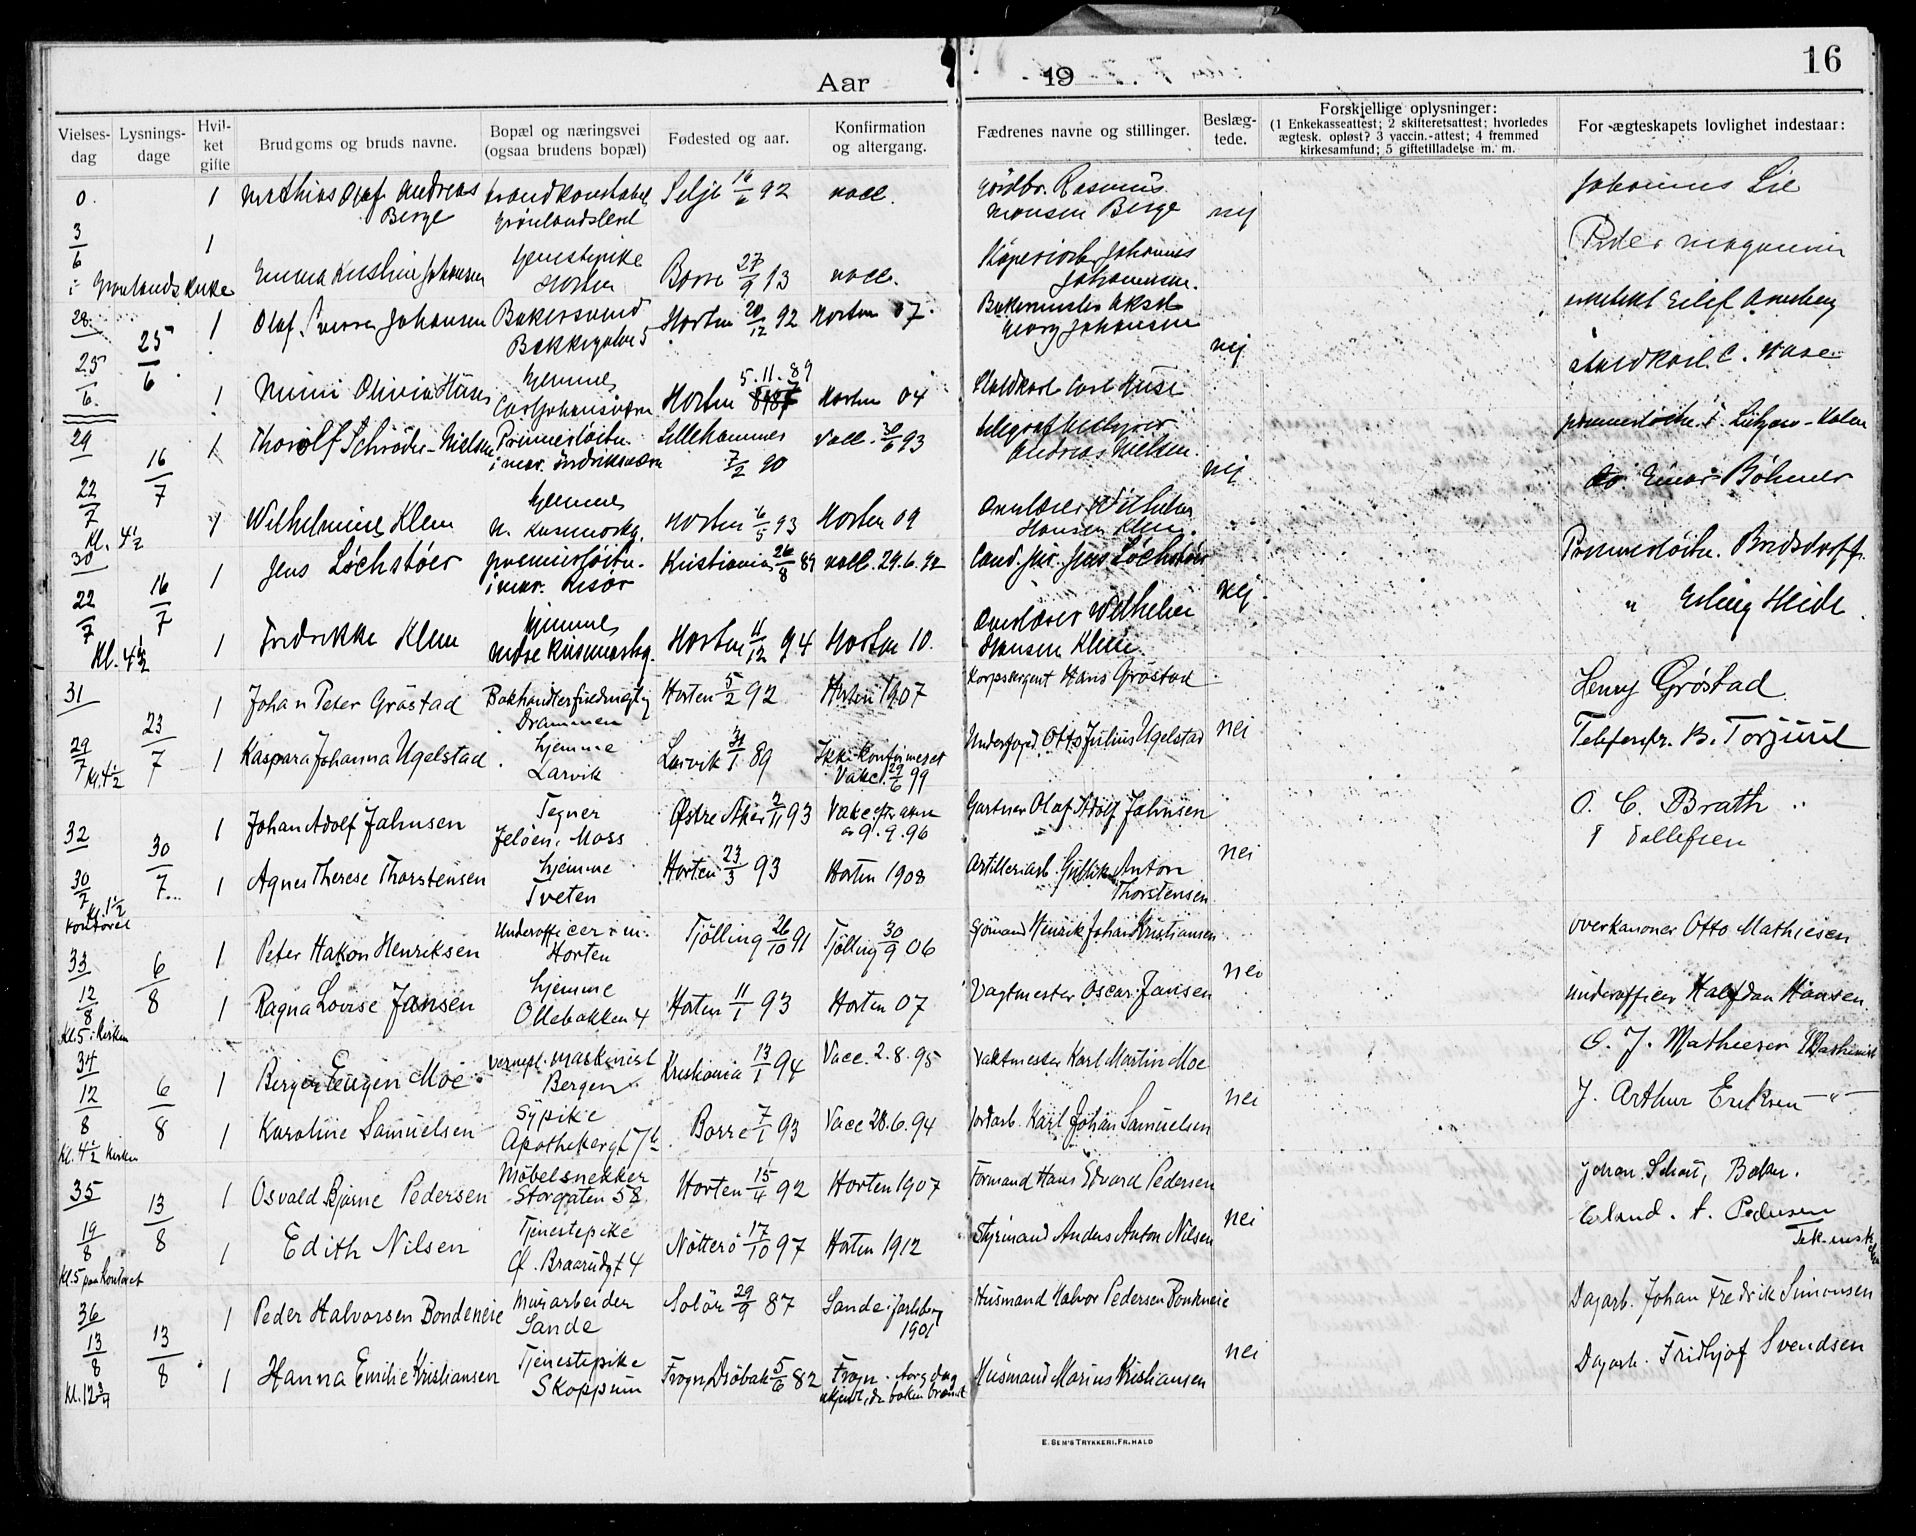 16
Aar 19
Vielses-dag
Lysnings-dage
Hvil-ket gifte
Brudgoms og bruds navne.
Bopæl og næringsvei (ogsaa brudens bopæl)
Fødested og aar.
Konfirmation og altergang.
Fædrenes navne og stillinger.
Beslæg-tede.
Forskjellige oplysninger: (1 Enkekasseattest; 2 skifteretsattest; hvorledes ægtesk. opløst? 3 vaccin.-attest; 4 fremmed kirkesamfund; 5 giftetilladelse m. m.
For ægteskapets lovlighet indestaar:
0. 1 Mathias Olaf Andreas Berge Grønlandsleret Selje 16/6 92 vacc. Gårdbr. Rasmus Monsen Berge nej Johannes Lie
3/6 i Grønlands kirke 1 Emma Kristine Johansen Tjenestepike Horten Borre 27/9 13 vacc. Johannes Johannessen. Peder
28. 25/6 25/6 1 Olaf Sverre Johansen Bakersvend Bakkegaten 5 Horten 20/12 92 Horten 07. Bakermester Aksel Georg Johansen nej
1 Mimi Olivia Huse hjemme Carljohansværn Horten 5.11.89 Horten 04 Carl Huse C. Huse
29 22/7 Kl. 4½ 16/7 1 Thorolf Schrøder-Nielsen Premierløitn. i mar. Fredriksværn Lillehammer 7/2 90 Vacc. /6 93 Andreas Nielsen. nej premierløitn.
1 Wilhelmine Klem hjemme N. Keisemarkg. Horten 6/5 93 Horten 09 Overlærer Wilhelm Hansen Klem do Einar Böhmer
30 22/7 Kl. 4½ 16/7 1 Jens Løchstøer premierløitn. i mar. Horten Kristiania 26/8 89 vacc. 29.6.92 Cand. jur. Jens Løchstøer nej. Premierløitn. Bredsdorff.
1 Fredrikke Klem hjemme Horten 11/12 94 Horten 10. Overlærer Wilhelm Hansen Klem. " Erling Heide
31 29/7 Kl. 4½ 23/7 1 Johan Peter Gröstad Bokhandlerfuldmægtig Drammen Horten 5/2 92 Horten 1907 Korpsersjent Hans Gröstad nei Henry Gröstad
1 Kaspara Johanna Ugelstad hjemme Larvik Larvik 31/1 89 Ikke konfirmeret Vakc. 29/6 99 Underfoged Otto Julius Ugelstad
32 30/7 Kl. 1½ kontoret 30/7 1 Johan Adolf Jahnsen Tegner Jelöen, Moss Østre Aker 2/11 93 9.9.96 Gartner Olaf Adolf Jahnsen nei O. C. Brath
1 Agnes Therese Thorstensen hjemme Tveten Horten 23/3 93 Horten 1908 Artilleriarb. Gullik Anton Thorstensen T Tollefsen
33 12/8 Kl. 5 i kirken 6/8 1 Peter Hakon Henriksen Underofficer i m. Horten Tjölling 26/10 91 Tjölling 30/9 06 Sjömand Henrik Johan Kristiansen nei overkanoner Otto Mathiesen
1 Ragna Lovise Jansen hjemme Ollebakken 4 Horten 11/1 93 Horten 07 Vagtmester Oscar Jansen Underofficer Halfdan Hansen
34 12/8 Kl. 4½ kirken 6/8 1 Birger Eugen Moe vernepl. maskinist Bergen Kristiania 13/1 94 Vacc. 2.8.95 Vaktmester Karl Martin Moe nei O. J. Mathiesen Maskinist
1 Karoline Samuelsen Sypike Apothekergt. 7b Borre 7/1 93 Vacc 28.6.94 Jordarb. Karl Johan Samuelsen J. Arthur Eriksen —"—
35 19/8 Kl. 5 paa kontoret 13/8 1 Osvald Bjarne Pedersen Möbelsnekker Storgaten 58 Horten 15/4 92 Horten 1907 Formand Hans Edvard Pedersen nei Johan Baker.
1 Edith Nilsen Tjenestepike Of. Braarudgt 4 Nötterö 17/10 97 Horten 1912 Styrmand Anders Anton Nilsen Erland. A. Pedersen
36 13/8 Kl. 12¾ 13/8 1 Peder Halvorsen Bondeneie Murarbeider Sande Solör 29/9 87 Sande i Jarlsberg 1901 Husmand Halvor Pedersen nei Dagarb. Johan Fredrik Simonsen
1 Hanna Emilie Kristiansen Tjenestepike Skoppum Frogn, Dröbak 5/6 82 Frogn. Aar og dag ukjendt, da boken brændt Husmand Marius Kristiansen Dagarb. Fridtjof Svendsen
E. SEM'S TRYKKERI, FR. HALD